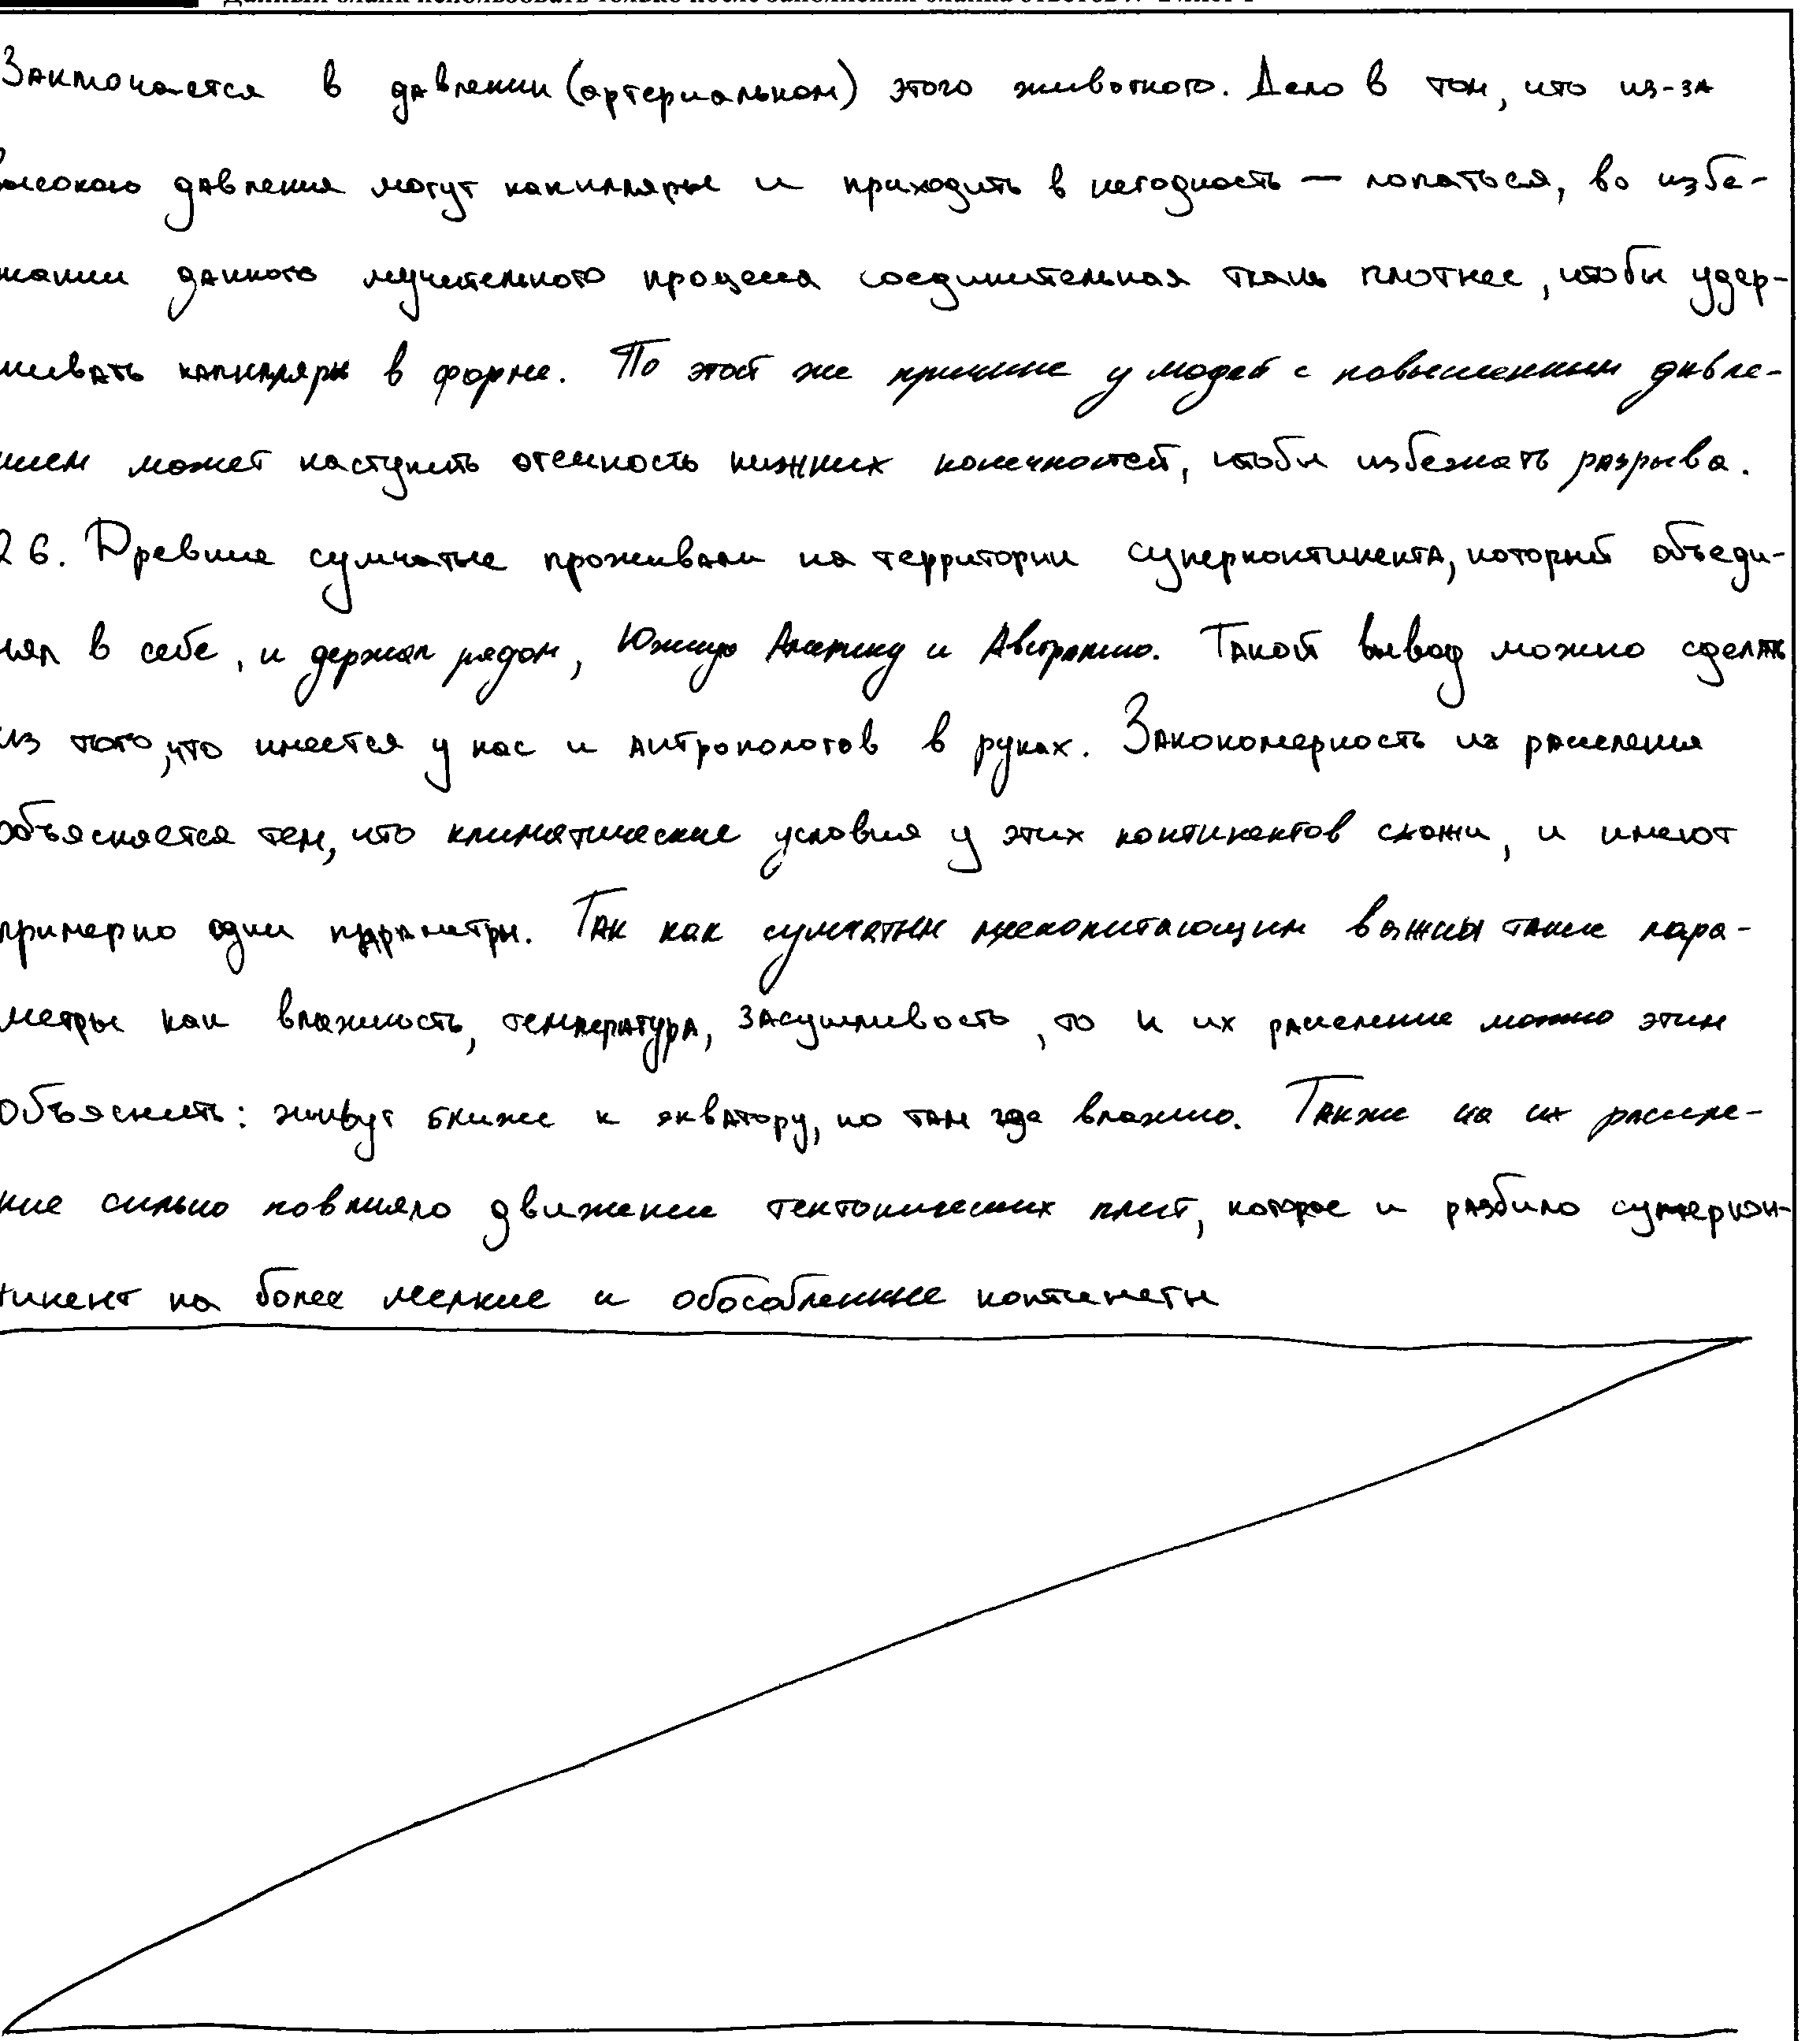 Заключается в давлении (артериальном) этого животного. Дело в том, что из-за
высокого давления могут капилляры и приходить в негодность — лопаться, во избе-
жании данного мучительного процесса соединительная ткань плотнее, чтобы удер-
живать капилляры в форме. По этой же причине у людей с повышенным давле-
нием может наступить отечность нижних конечностей, чтобы избежать разрыва.
26. Древние сумчатые проживали на территории суперконтинента, который объеди-
нял в себе, и держал рядом, Южную Америку и Австралию. Такой вывод можно сделать
из того, что имеется у нас и антропологов в руках. Закономерность их расселения
объясняется тем, что климатические условия у этих континентов схожи, и имеют
примерно одни параметры. Так как сумчатым млекопитающим важны такие пара-
метры как влажность, температура, засушливость, то и их расселение можно этим
объяснить: живут ближе к экватору, но там где влажно. Также на их расселе-
ние сильно повлияло движение тектонических плит, которое и разбило суперкон-
тинент на более мелкие и обособленные континеты